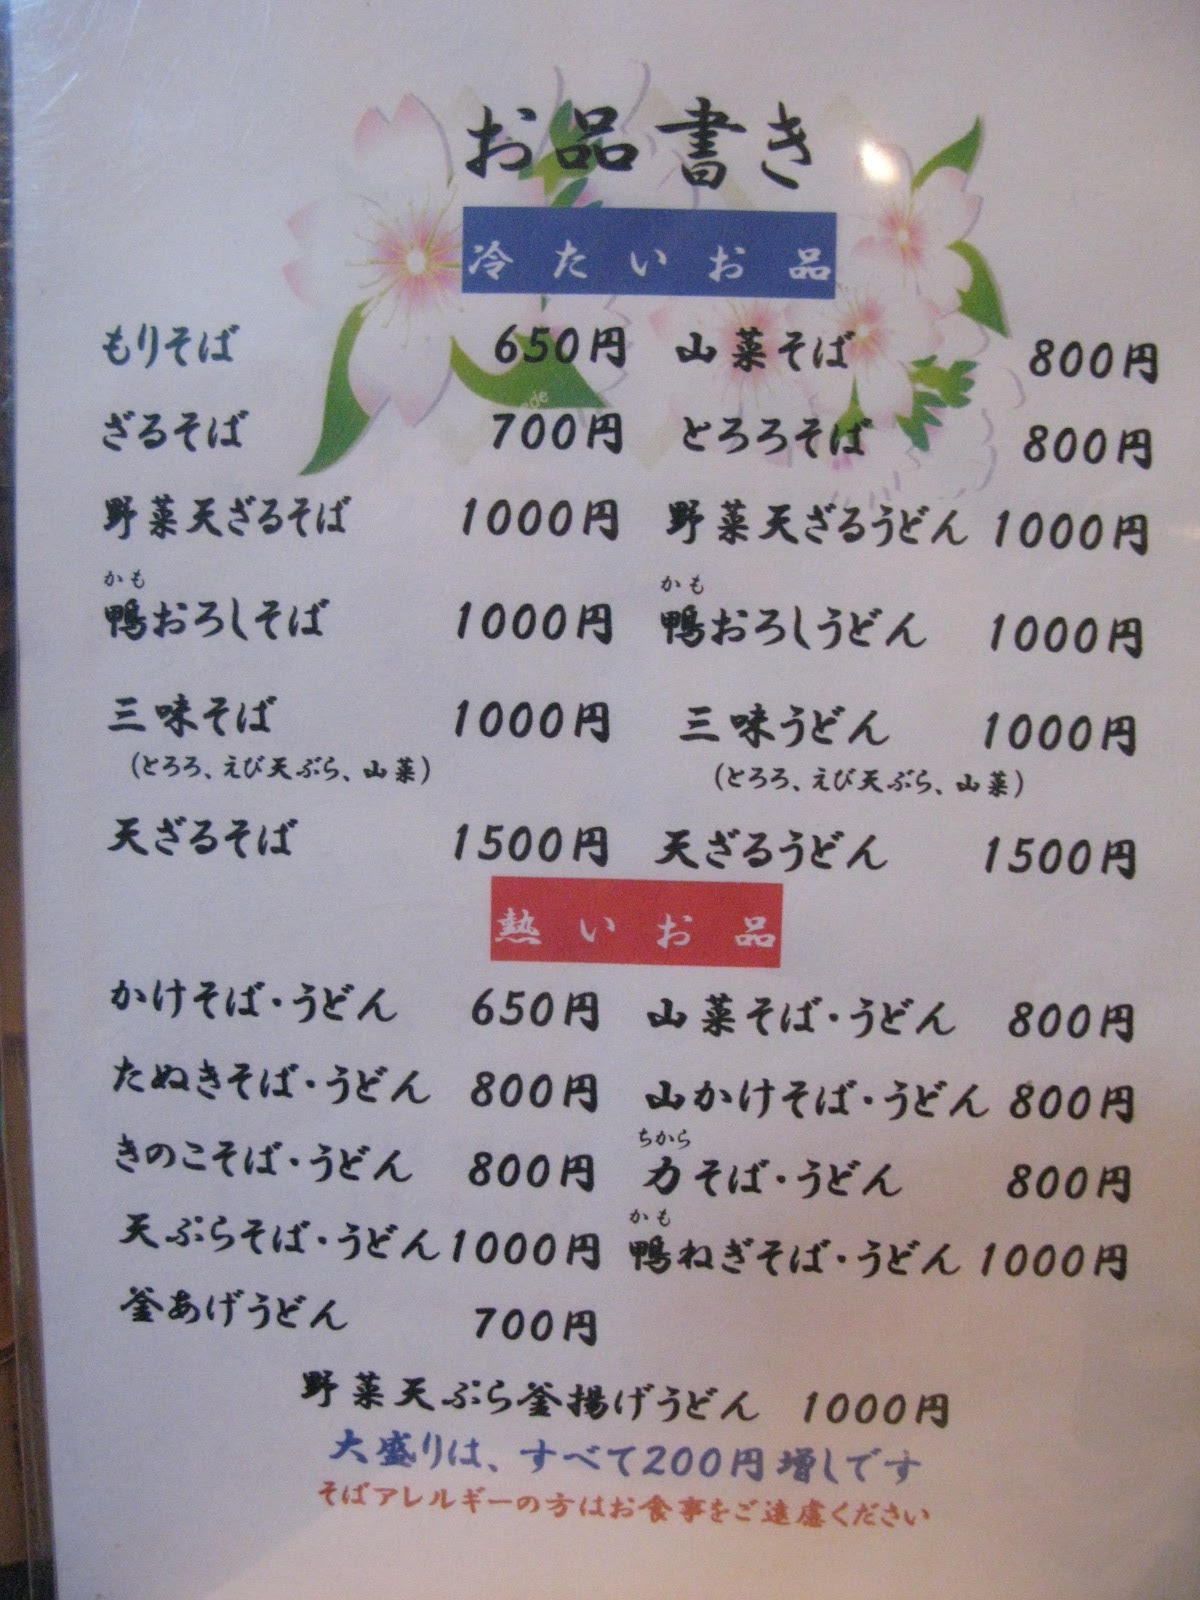 お品書き
冷たいお品
もりそば 650円 山菜そば 800円
ざるそば 700円 とろろそば 800円
野菜天ざるそば 1000円 野菜天ざるうどん 1000円
かも かも
鴨おろしそば 1000円 鴨おろしうどん 1000円
三味そば 1000円 三味うどん 1000円
(とろろ、えび天ぷら、山菜) (とろろ、えび天ぷら、山菜)
天ざるそば 1500円 天ざるうどん 1500円
熱いお品
かけそば・うどん 650円 山菜そば・うどん 800円
たぬきそば・うどん 800円 山かけそば・うどん 800円
ちから
きのこそば・うどん 800円 力そば・うどん 800円
かも
天ぷらそば・うどん 1000円 鴨ねぎそば・うどん 1000円
釜あげうどん 700円
野菜天ぷら釜揚げうどん 1000円
大盛りは、すべて200円増しです
そばアレルギーの方はお食事をご遠慮ください